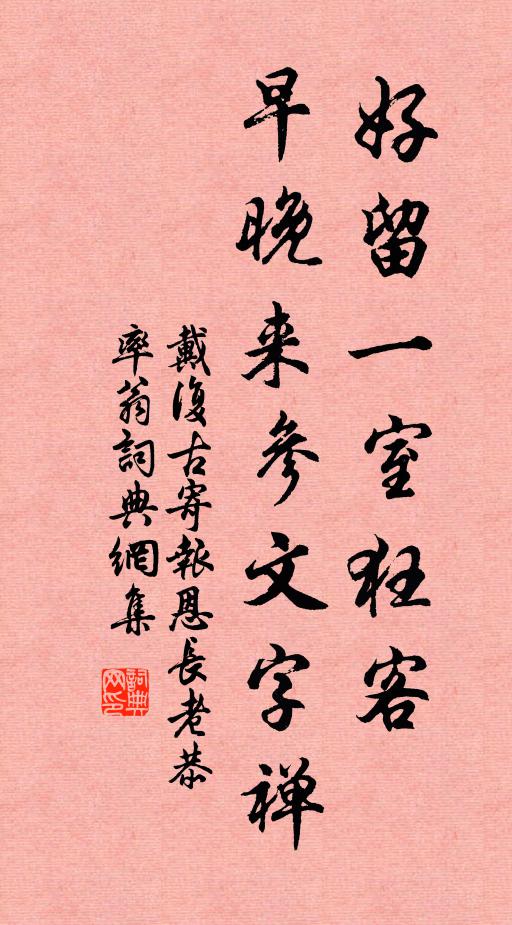 好留一室狂客
早晚来参文字禅
戴復古寄報恩長老恭
率翁詞典網集
詞典
网印